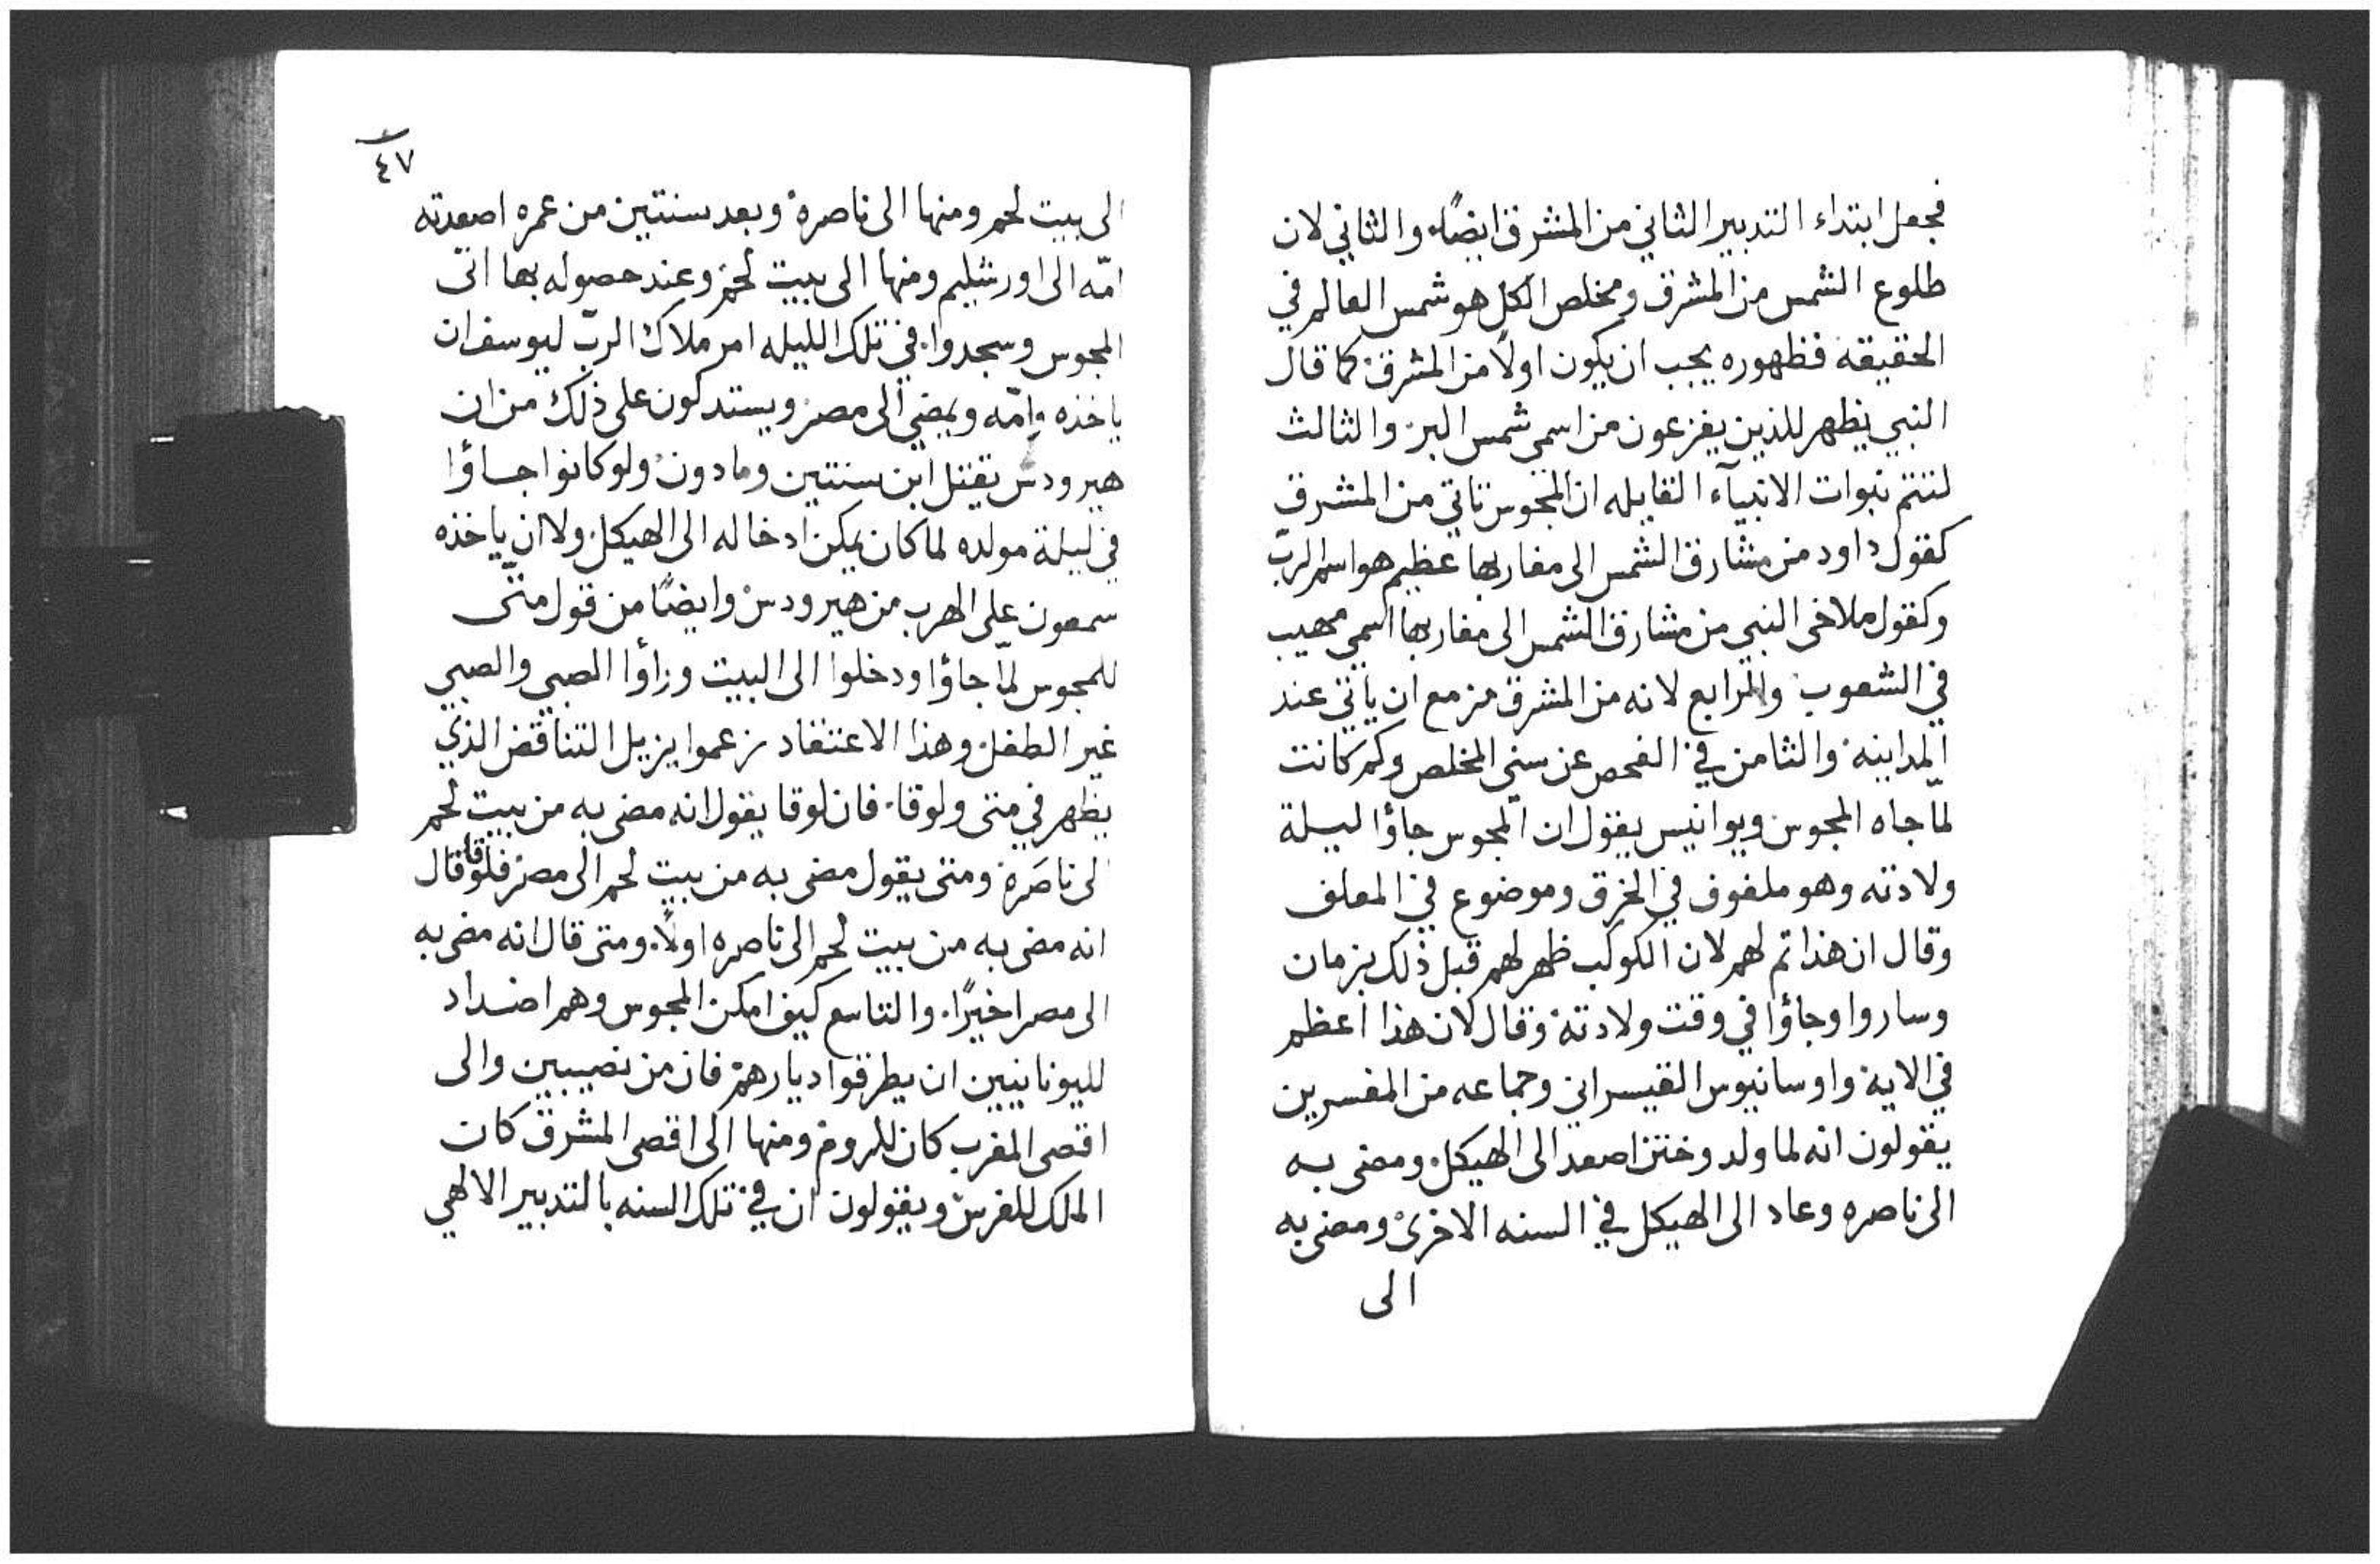 فجعل ابتداء التدبير الثاني من المشرق ايضًا. والثاني لان
طلوع الشمس من المشرق ومخلص الكل هو شمس العالم في
الحقيقة فظهوره يجب ان يكون اولًا من المشرق كما قال
النبي يظهر للذين يفزعون من اسمى شمس البر والثالث
لتتم نبوات الانبيآء القايله ان المجوس تاتي من المشرق
كقول داود من مشارق الشمس الى مغاربها عظيم هو اسم الربّ
وكقول ملاخى النبي من مشارق الشمس الى مغاربها اسمى مهيب
في الشعوب والرابع لانه من المشرق مزمع ان ياتي عند
المداينة والثامن في الفحص عن سني المخلص وكم كانت
لمّا جاه المجوس ويوانيس يقول ان المجوس جاؤا ليلة
ولادته وهو ملفوف في الخرق وموضوع في المعلف
وقال ان هذا تم لهم لان الكوكب ظهر لهم قبل ذلك بزمان
وساروا وجاؤا في وقت ولادته وقال لان هذا اعظم
في الاية واوسانيوس القيسراني وجماعه من المفسرين
يقولون انه لما ولد وختن اصعد الى الهيكل ومضى به
الى ناصره وعاد الى الهيكل في السنه الاخرى ومضى به
الى
٤٧
الى بيت لحم ومنها الى ناصرة وبعد سنتين من عمره اصعدته
امّه الى اورشليم ومنها الى بيت لحم وعند حصوله بها اتى
المجوس وسجدوا. في تلك الليله امر ملاك الربّ ليوسف ان
ياخذه وامّه ويمضي الى مصر ويستدكون على ذلك من ان
هيرودس يقتل ابن سنتين ومادون ولو كانوا جاؤا
في ليلة مولده لما كان يمكن ادخاله الى الهيكل ولا ان ياخذه
سمعون على الهرب من هيرودس وايضًا من قول متّى
للمجوس لمّا جاؤا ودخلوا الى البيت وراؤا الصبي والصبي
غير الطفل وهذا الاعتقاد زعموا يزيل التناقض الذي
يظهر في متى ولوقا. فان لوقا يقول انه مضى به من بيت لحم
الى ناصَرة ومتى يقول مضى به من بيت لحم الى مصر فلوقا قال
انه مضى به من بيت لحم الى ناصره اولًا. ومتى قال انه مضى به
الى مصر اخيرًا. والتاسع كيف امكن المجوس وهم اضداد
لليونانيين ان يطرقوا ديارهم فان من نصيبين والى
اقصى المغرب كان للروم ومنها الى اقصى المشرق كان
الملك للفرس ويقولون ان في تلك السنه بالتدبير الالهي